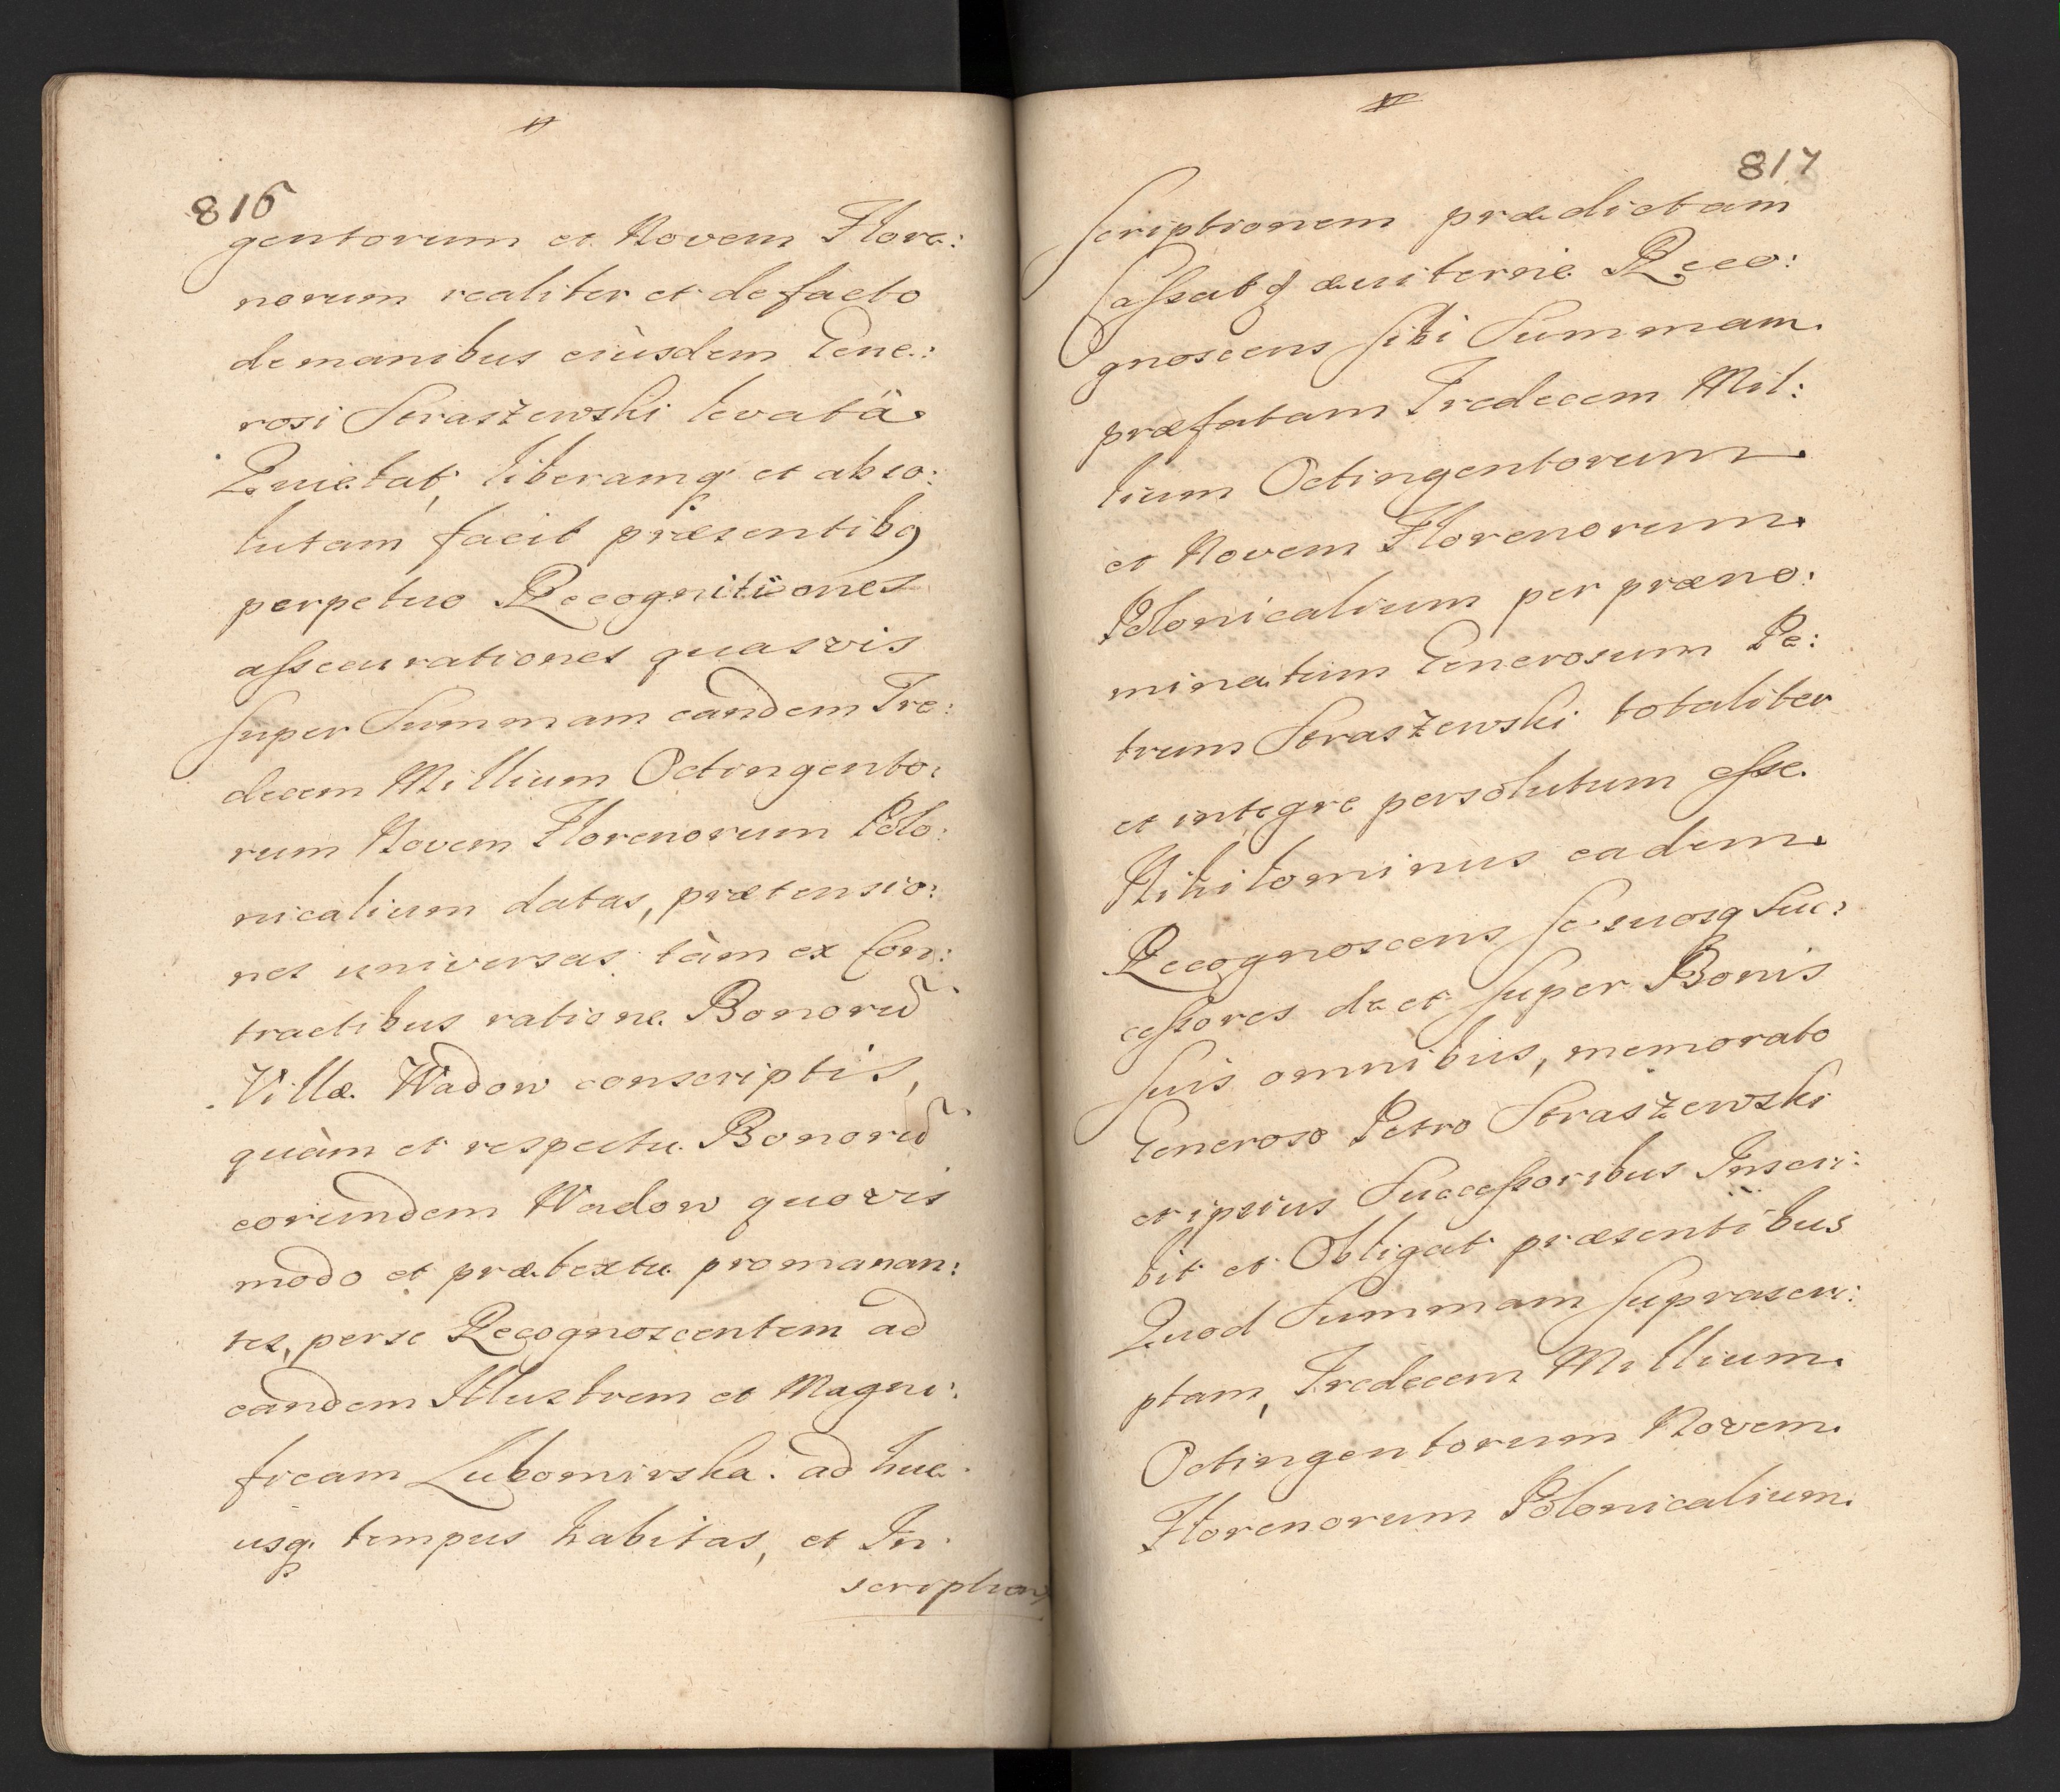 816
gentorum et Novem Flore:
norum realiter et de facto
de manibus eiùsdem Gene:
rosi Straszewski levatä
Quietat, liberamq et abso:
lutam facit præsentibq
perpetuo Recognitiones
assecurationes quasvis
super Summam eandem Tre:
decem Millium Octingento:
rum Novem Florenorum Polo:
nicalium datas, prætensio:
nes universas tàm ex Con:
tractibus ratione Bonorū
Villæ Wadow conscriptis,
quàm et respectu Bonorū
eorundem Wadow quovis
modo et prætextu promanan:
tes, per se Recognoscentem ad
eandem Illustrem et Magni:
ficam Lubomirska ad huc
usq tempus habitas, et In
scription
817
scriptionem prædictam
Cassatq æviterne Reco:
gnoscens sibi Summam
præfatam Tredecem Mil:
lium Octingentorum
et Novem Florenorum
Polonicalium per præno:
minatum Generosum Pe:
trum Straszewski totaliter
et integre persolutum esse
Nihilominus eadem
Recognoscens se suosq Suc:
cessores de et super Bonis
suis omnibus, memorato
Generoso Petro Straszewski
et ipsius Successoribus Inscri:
bit et Obligat præsentibus
Quod Summam suprascri:
ptam, Tredecem Millium
Octingentorum Novem
Florenorum Polonicalium